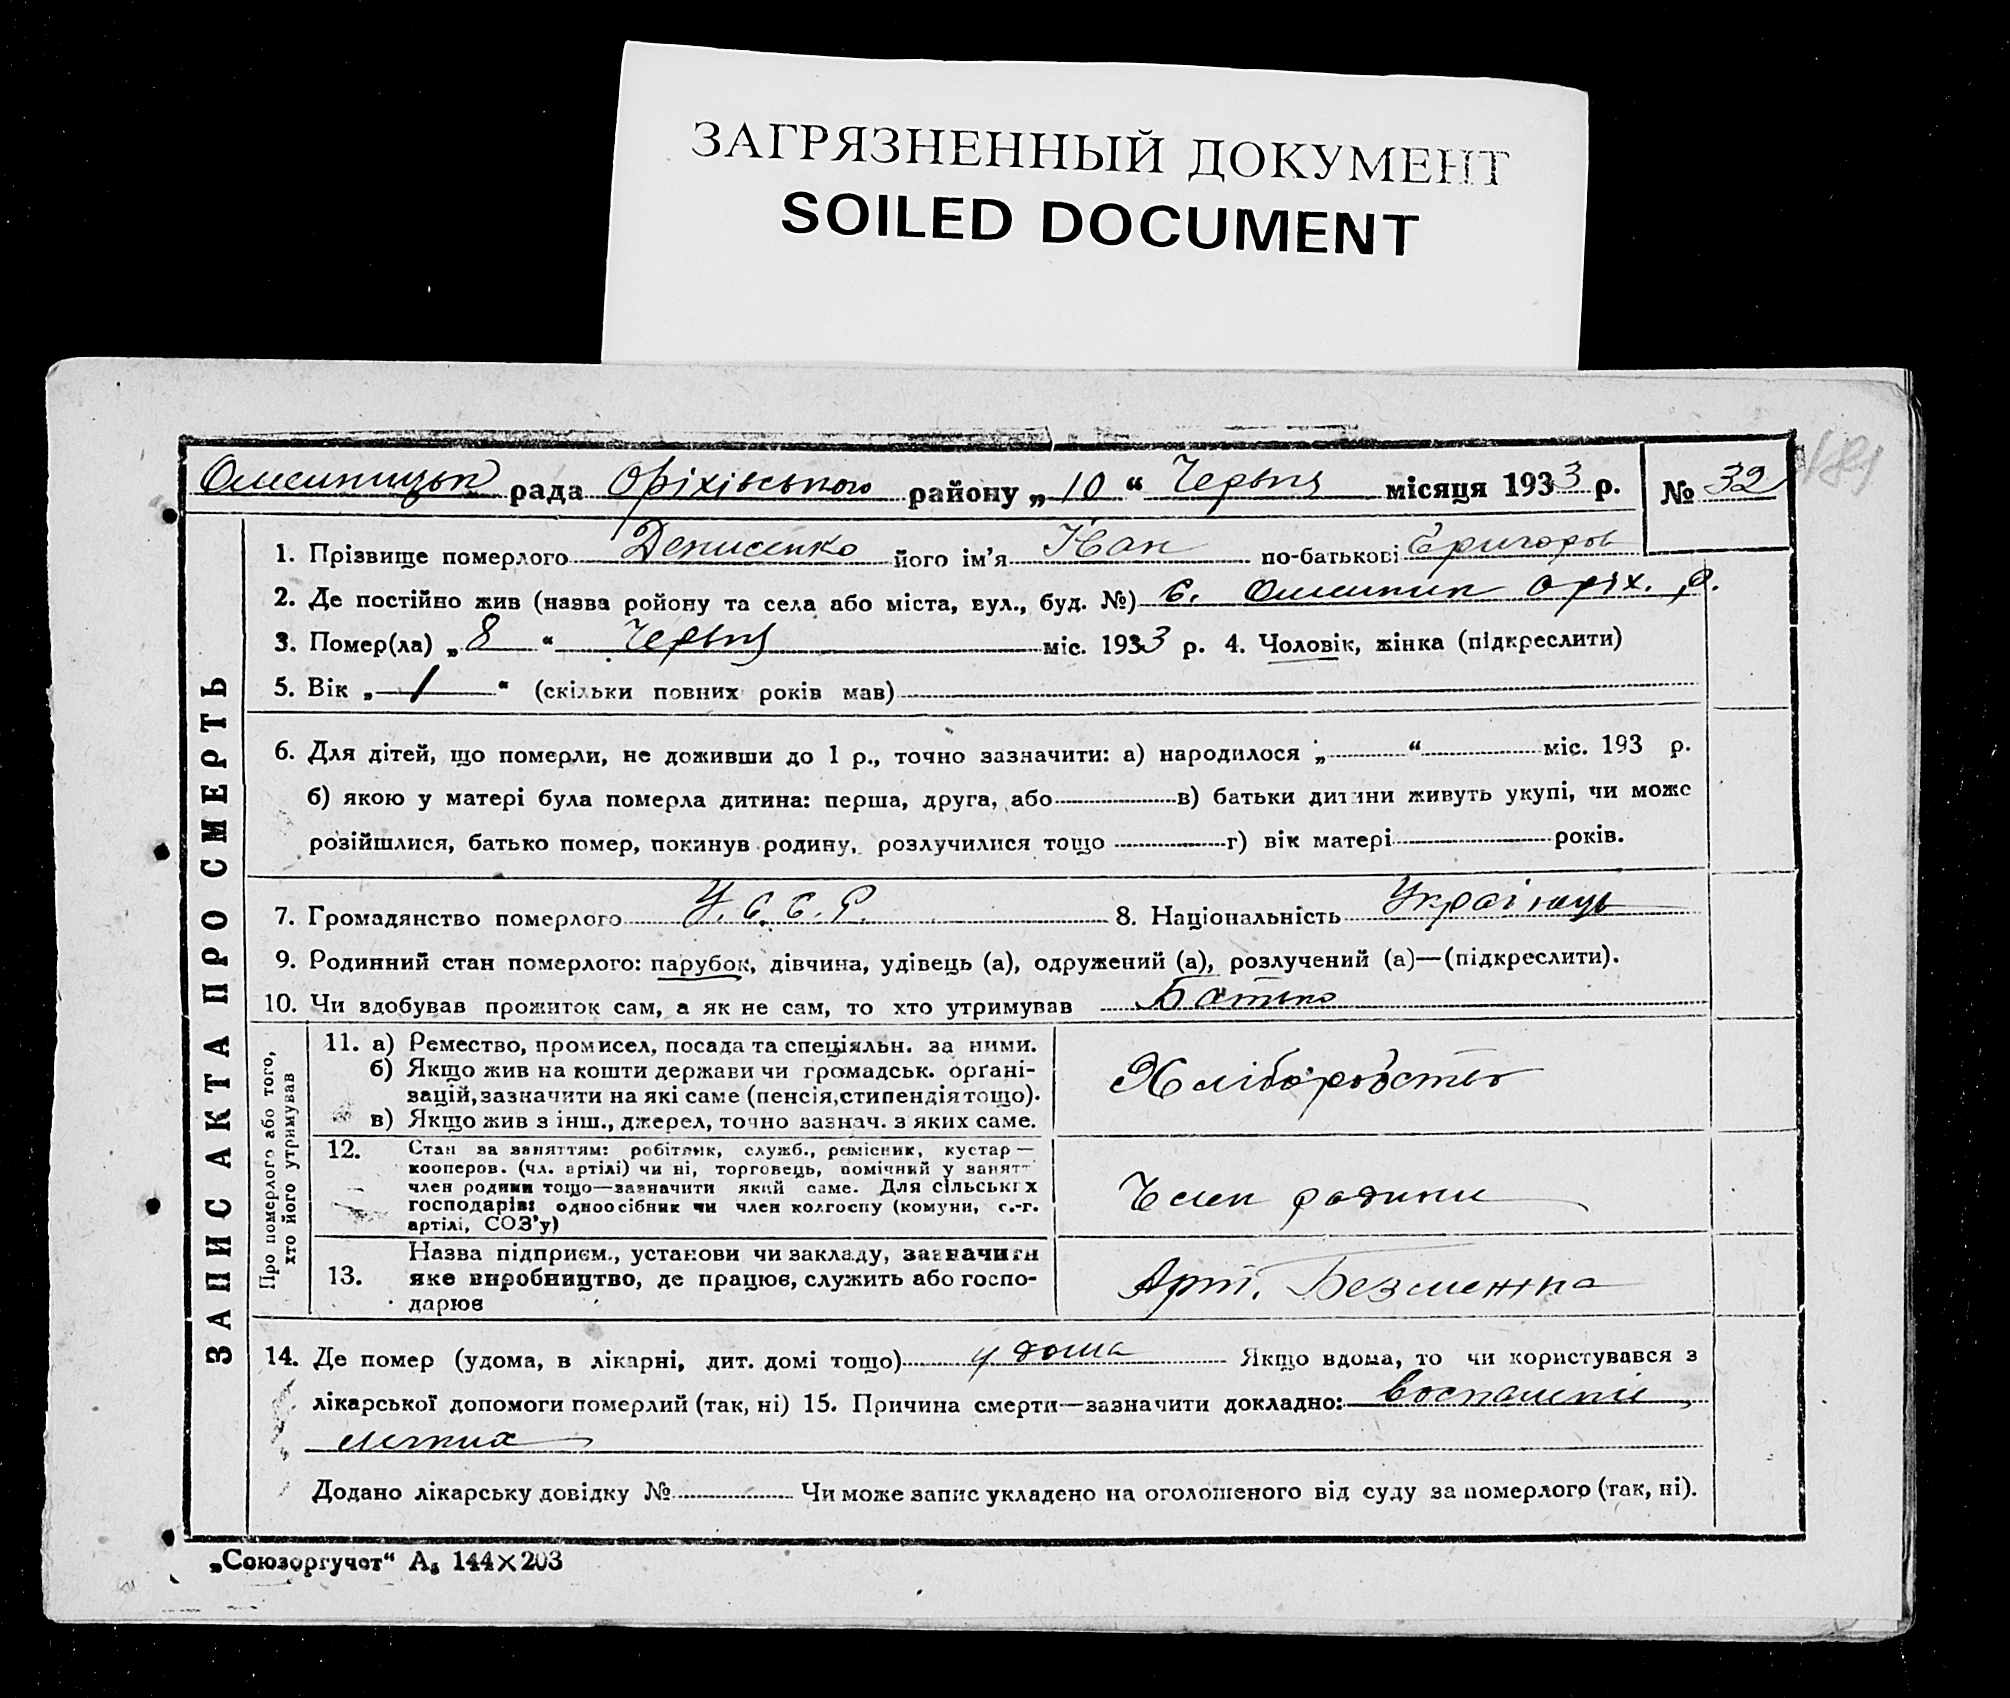 ЗАГРЯЗНЕННЫЙ ДОКУМЕНТ
SOILED DOCUMENT
рада Оріхівського району „ 10 “ Червня місяця 1933 р. № 32
ЗАПИС АКТА ПРО СМЕРТЬ
1. Прізвище померлого Денисенко його ім’я Іван по-батькові Григоров
2. Де постійно жив (назва ройону та села або міста, вул., буд. №) с. Оріх. р.
3. Помер(ла) „ 8 “ Червня міс. 1933 р. 4. Чоловік, жінка (підкреслити)
5. Вік „ 1 “ (скільки повних років мав)
6. Для дітей, що померли, не доживши до 1 р., точно зазначити: а) народилося „ “ міс. 193 р.
б) якою у матері була померла дитина: перша, друга, або в) батьки дитини живуть укупі, чи може
розійшлися, батько помер, покинув родину, розлучилися тощо г) вік матері років.
7. Громадянство померлого У. С. С. Р. 8. Національність Українць
9. Родинний стан померлого: парубок, дівчина, удівець (а), одружений (а), розлучений (а)—(підкреслити).
10. Чи здобував прожиток сам, а як не сам, то хто утримував Батько
Про померлого або того, хто його утримував
11. а) Ремество, промисел, посада та спеціяльн. за ними.
б) Якщо жив на кошти держави чи громадськ. органі-
зацій, зазначити на які саме (пенсія, стипендія тощо).
в) Якщо жив з інш., джерел, точно зазнач. з яких саме.
Хліборобство
12. Стан за заняттям: робітник, служб., ремісник, кустар—
кооперов. (чл. артілі) чи ні, торговець, помічний у занятт
член родини тощо—зазначити який саме. Для сільських
господарів: одноосібник чи член колгоспу (комуни, с.-г.
артілі, СОЗ’у)
Член родини
13. Назва підприєм., установи чи закладу, зазначити
яке виробництво, де працює, служить або госпо-
дарює
Арт. Безмежна
14. Де помер (удома, в лікарні, дит. домі тощо) у дома Якщо вдома, то чи користувався з
лікарської допомоги померлий (так, ні) 15. Причина смерти—зазначити докладно: воспаленіе
легких
Додано лікарську довідку № Чи може запис укладено на оголошеного від суду за померлого (так, ні).
„Союзоргучот“ А₅ 144×203